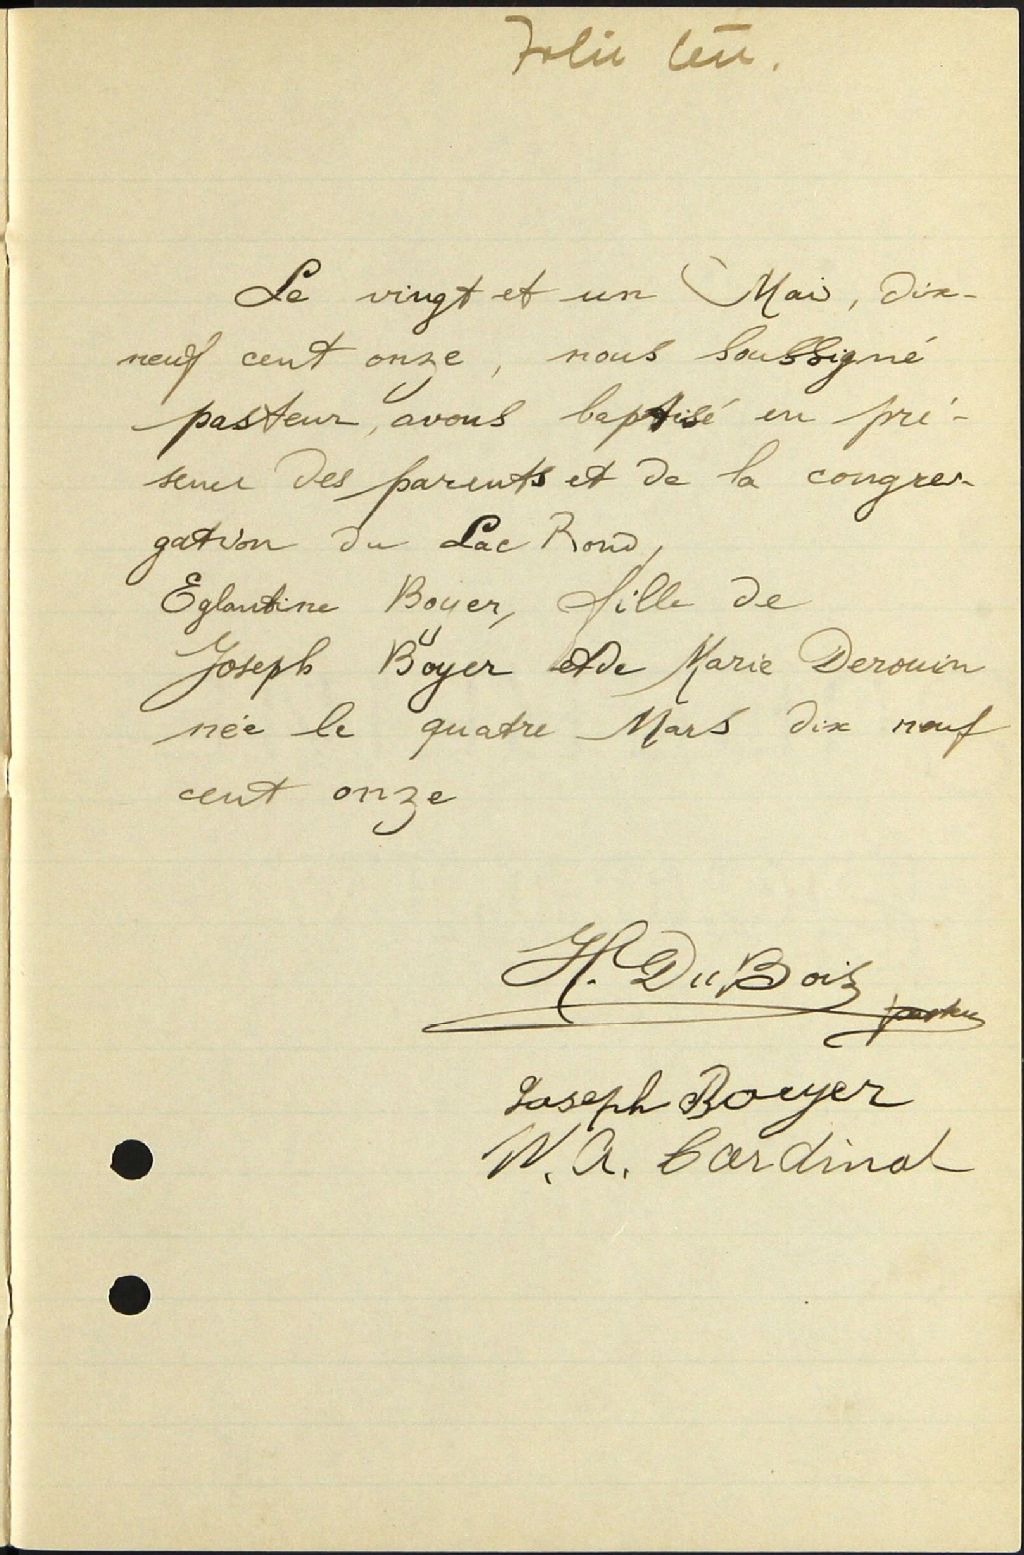 Folio
Le vingt et un Mai, dix-
neuf cent onze, nous soussigné
pasteur, avons baptisé en pré-
sence des parents et de la congré-
gation du Lac Rond,
Eglantine Boyer, fille de
Joseph Boyer et de Marie Derouin
née le quatre Mars dix neuf
cent onze
H. DuBois pasteur
Joseph Bouyer
W. A. Cardinal